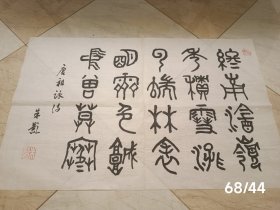 終南陰嶺
秀積雪浮
雲端林表
明霽色城
中曾莫寒
唐祖詠詩
68/44